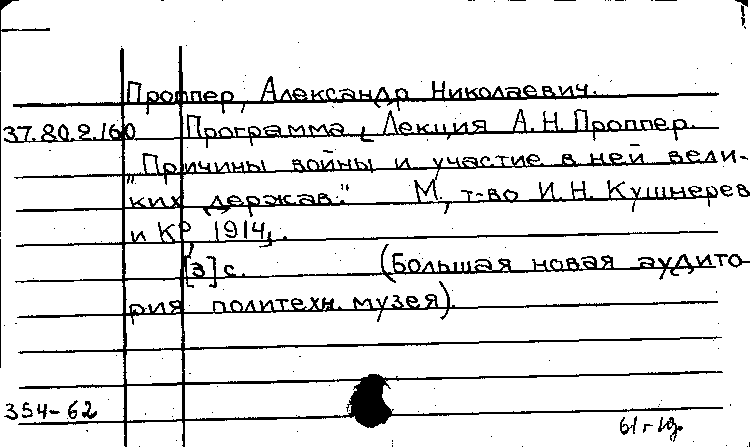 Проппер, Александр Николаевич.
37.20.2.160 Программа. Лекция А.Н. Проппер.
„Причины войны и участие в ней вели-
ких держав." М., т-во И.Н. Кушнерев
и К°, 1914.
[3] с. (Большая новая аудито
рия политехн. музея).
354-62